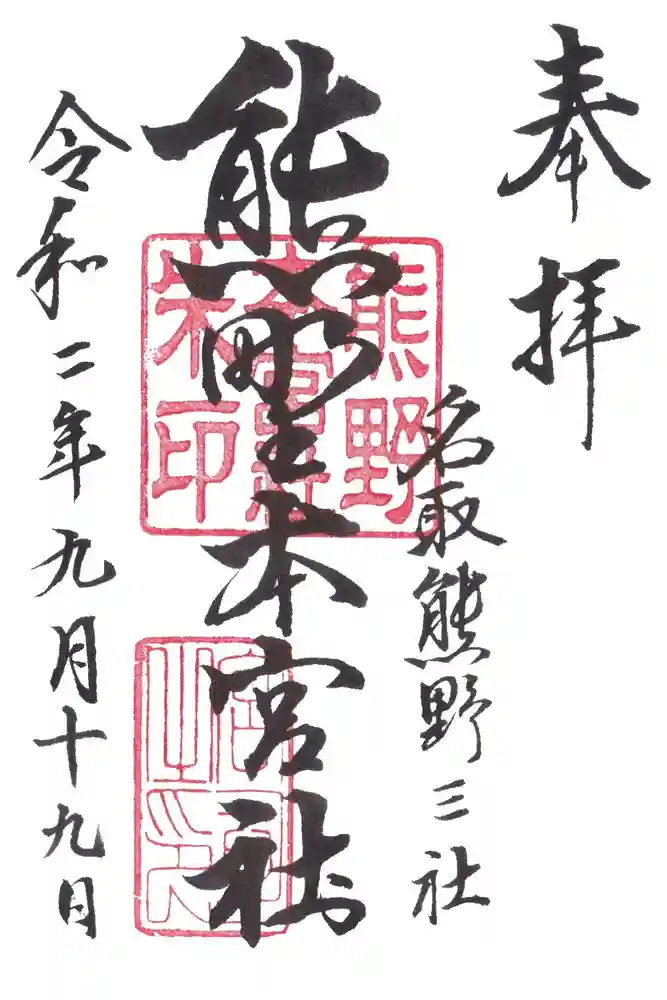 奉拝
名取熊野三社
熊野本宮社
令和二年九月十九日
熊野
朱印